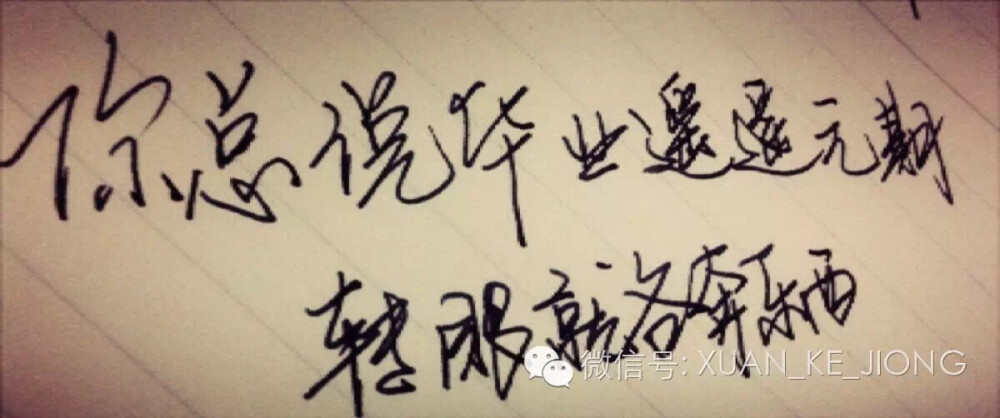 你总说毕业遥遥无期
转眼就各奔东西
微信号: XUAN_KE_JIONG